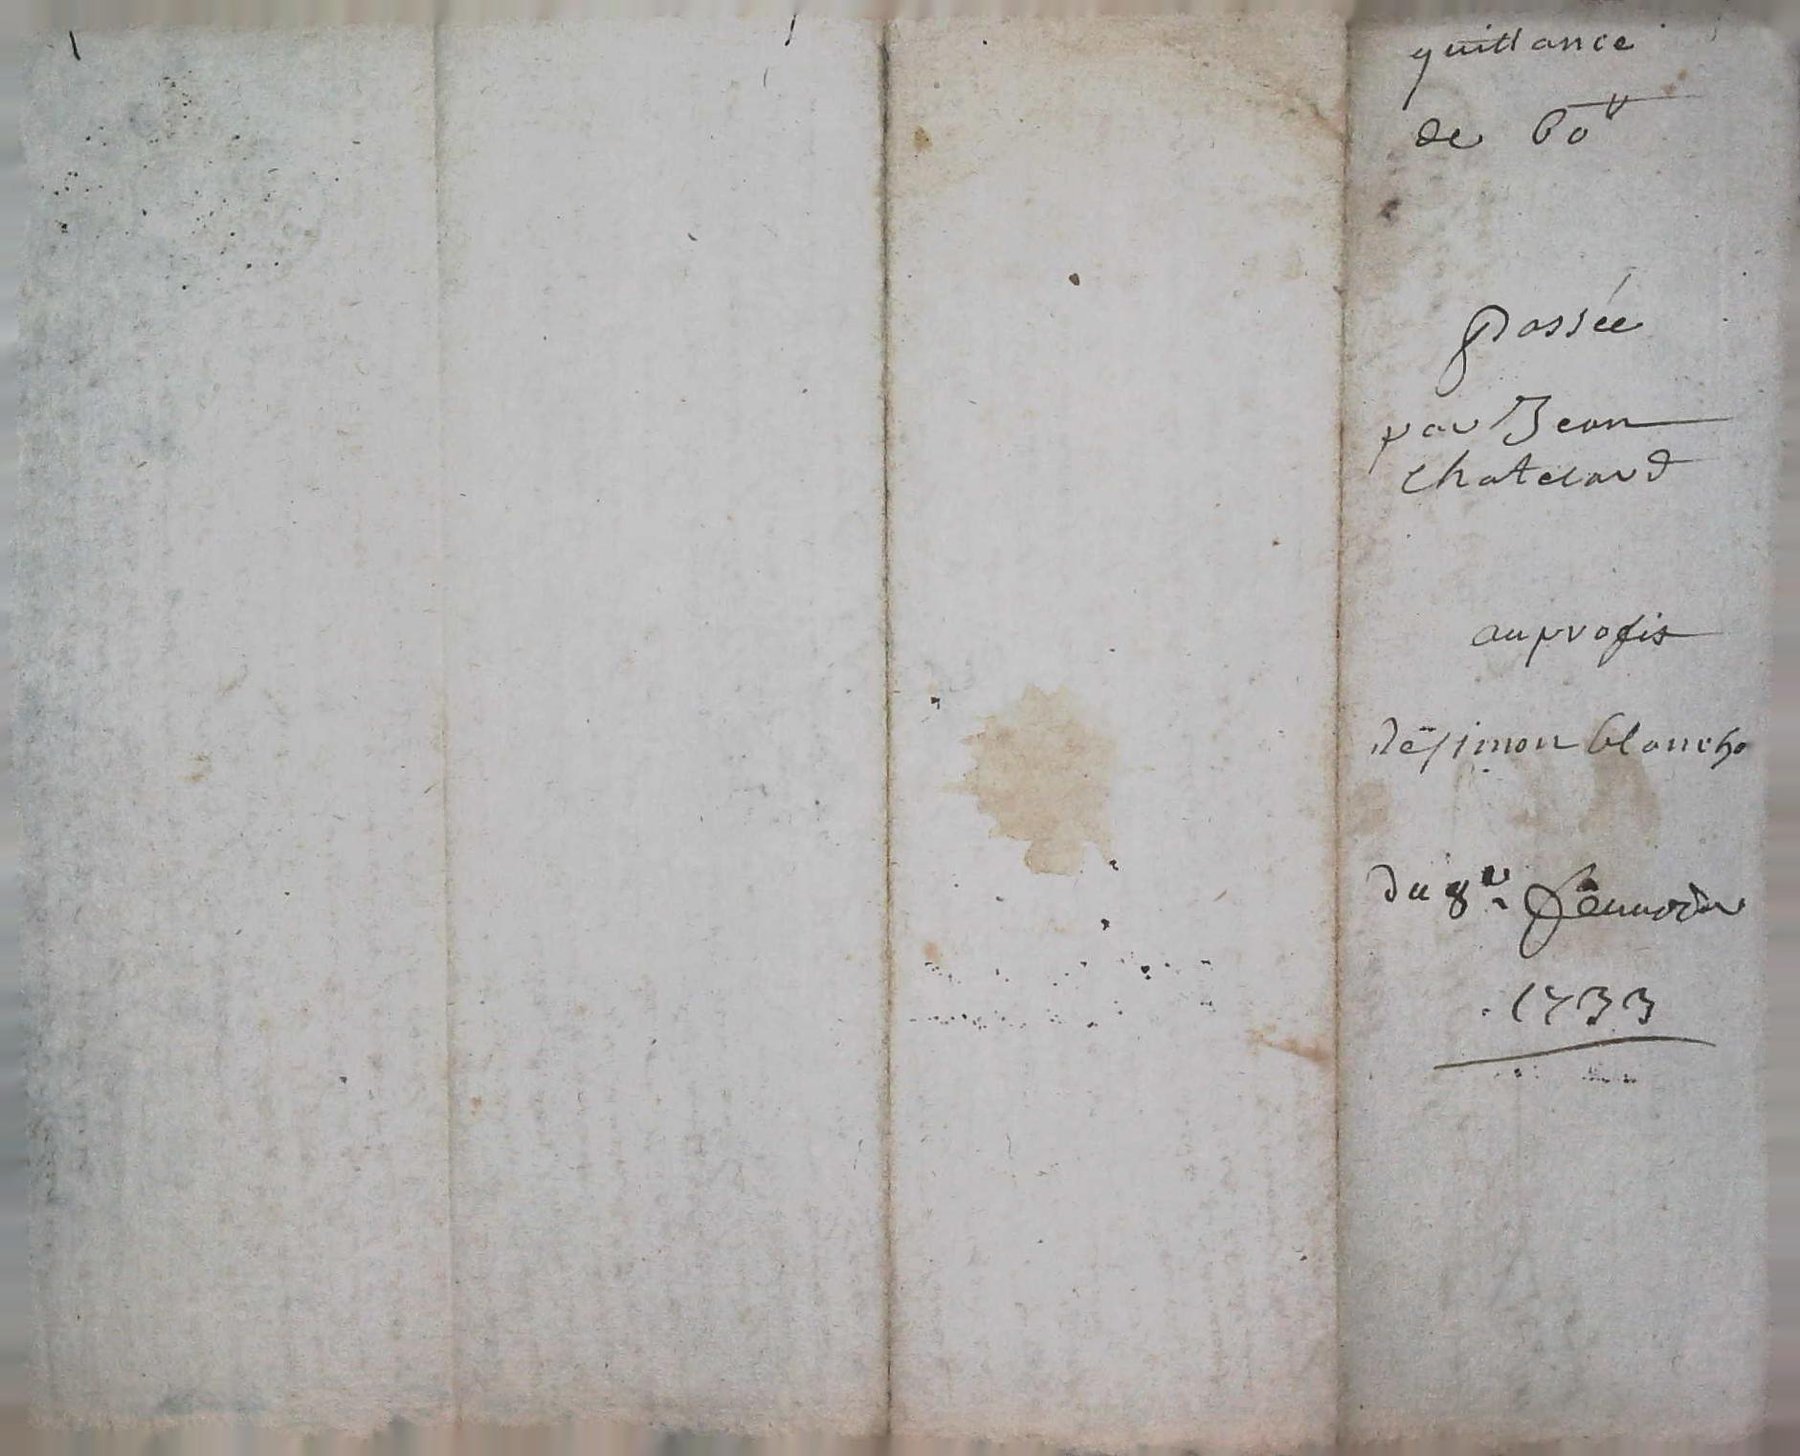 quittance
de 60ᵗᵗ
passée
par Jean
Chatelard
au profis
de simon blanche
du 8ᵉ
1733